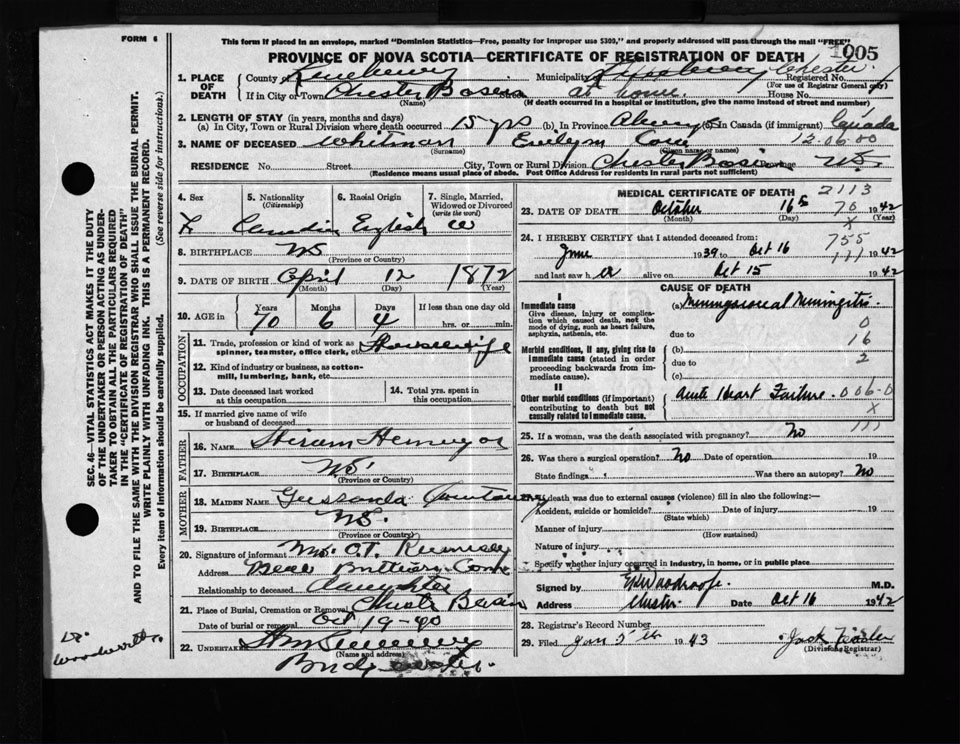 FORM 6
This form if placed in an envelope, marked "Dominion Statistics—Free, penalty for improper use $300," and properly addressed will pass through the mail "FREE"
PROVINCE OF NOVA SCOTIA—CERTIFICATE OF REGISTRATION OF DEATH
1005
1. PLACE OF DEATH
County Lunenburg Municipality Chester Registered No.
(For use of Registrar General only)
If in City or Town Chester Basin at home House No.
(Name) (If death occurred in a hospital or institution, give the name instead of street and number)
2. LENGTH OF STAY (in years, months and days)
(a) In City, Town or Rural Division where death occurred 15 yrs (b) In Province Always (c) In Canada (if immigrant) Canada
12.06.00
3. NAME OF DECEASED Whitman Evelyn
(Surname) (Given name or names)
RESIDENCE No. Street City, Town or Rural Division Chester Basin Province NS.
(Residence means usual place of abode. Post Office Address for residents in rural parts not sufficient)
4. Sex 5. Nationality (Citizenship) 6. Racial Origin 7. Single, Married, Widowed or Divorced (write the word)
F Canadian English W
8. BIRTHPLACE NS
(Province or Country)
9. DATE OF BIRTH April 12 1872
(Month) (Day) (Year)
10. AGE in Years Months Days If less than one day old
70 6 4 hrs. or min.
OCCUPATION
11. Trade, profession or kind of work as spinner, teamster, office clerk, etc. Housewife
12. Kind of industry or business, as cotton-mill, lumbering, bank, etc.
13. Date deceased last worked at this occupation
14. Total yrs. spent in this occupation
15. If married give name of wife or husband of deceased
FATHER
16. NAME Hiram
17. BIRTHPLACE NS.
MOTHER
18. MAIDEN NAME
19. BIRTHPLACE NS.
(Province or Country)
20. Signature of informant Mrs. O.T.
Address
Relationship to deceased Daughter
21. Place of Burial, Cremation or Removal Chester Basin
Date of burial or removal Oct 19-40
22. UNDERTAKER
(Name and address)
MEDICAL CERTIFICATE OF DEATH
2113
23. DATE OF DEATH October 16th 1942
(Month) (Day) (Year)
70
x
24. I HEREBY CERTIFY that I attended deceased from:
755
June 1939 to Oct 16 1942
111
and last saw her alive on Oct 15 1942
CAUSE OF DEATH
I
Immediate cause (a) Meningococcal Meningitis.
Give disease, injury or complication which caused death, not the mode of dying, such as heart failure, asphyxia, asthenia, etc.
0
due to 16
Morbid conditions, if any, giving rise to immediate cause (stated in order proceeding backwards from immediate cause).
(b)
2
due to
(c)
II
Other morbid conditions (if important) contributing to death but not causally related to immediate cause.
Acute Heart Failure. 006-0
x
111
25. If a woman, was the death associated with pregnancy? No
26. Was there a surgical operation? No Date of operation 19
State findings Was there an autopsy? No
death was due to external causes (violence) fill in also the following:—
Accident, suicide or homicide? Date of injury 19
(State which)
Manner of injury
(How sustained)
Nature of injury
Specify whether injury occurred in industry, in home, or in public place
Signed by M.D.
Address Chester. Date Oct 16 1942
28. Registrar's Record Number
29. Filed Jan 5th 1943 Jack
(Division Registrar)
SEC. 46—VITAL STATISTICS ACT MAKES IT THE DUTY
OF THE UNDERTAKER OR PERSON ACTING AS UNDER-
TAKER TO OBTAIN ALL THE PARTICULARS REQUIRED
IN THE "CERTIFICATE OF REGISTRATION OF DEATH"
AND TO FILE THE SAME WITH THE DIVISION REGISTRAR WHO SHALL ISSUE THE BURIAL PERMIT.
WRITE PLAINLY WITH UNFADING INK. THIS IS A PERMANENT RECORD.
Every item of information should be carefully supplied. (See reverse side for instructions).
Dr.